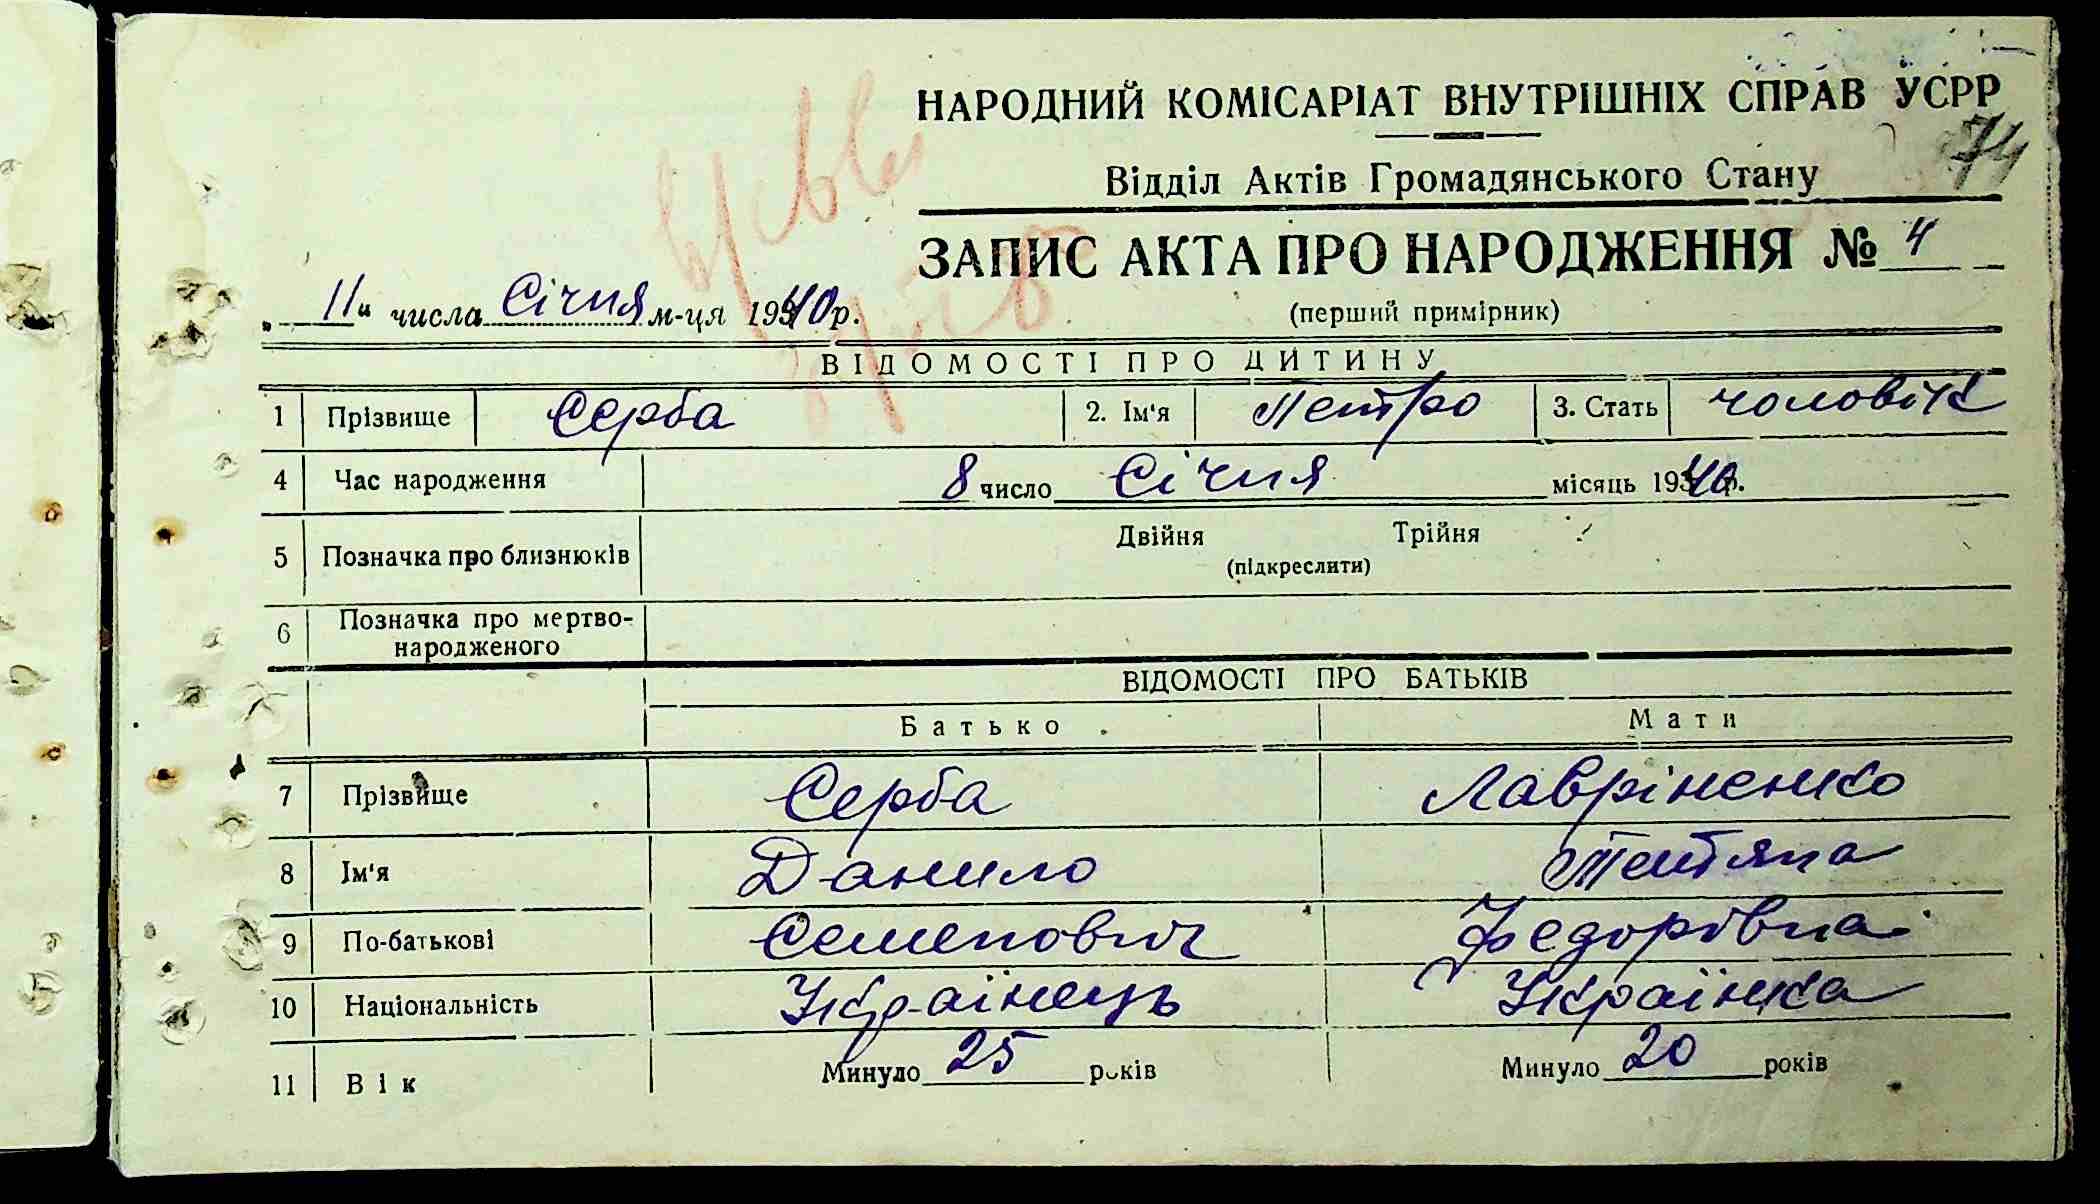 НАРОДНИЙ КОМІСАРІАТ ВНУТРІШНІХ СПРАВ УСРР
74
Відділ Актів Громадянського Стану
ЗАПИС АКТА ПРО НАРОДЖЕННЯ № 4
„ 11 “ числа Січня м-ця 1940 р.
(перший примірник)
ВІДОМОСТІ ПРО ДИТИНУ
1 Прізвище Серба 2. Ім'я Петро 3. Стать чоловік
4 Час народження 8 число Січня місяць 1940 р.
5 Позначка про близнюків Двійня Трійня
(підкреслити)
6 Позначка про мертво-
народженого
ВІДОМОСТІ ПРО БАТЬКІВ
Батько Мати
7 Прізвище Серба Лавріненко
8 Ім'я Данило Тетяна
9 По-батькові Семенович Федорівна
10 Національність Українець Українка
11 Вік Минуло 25 років Минуло 20 років